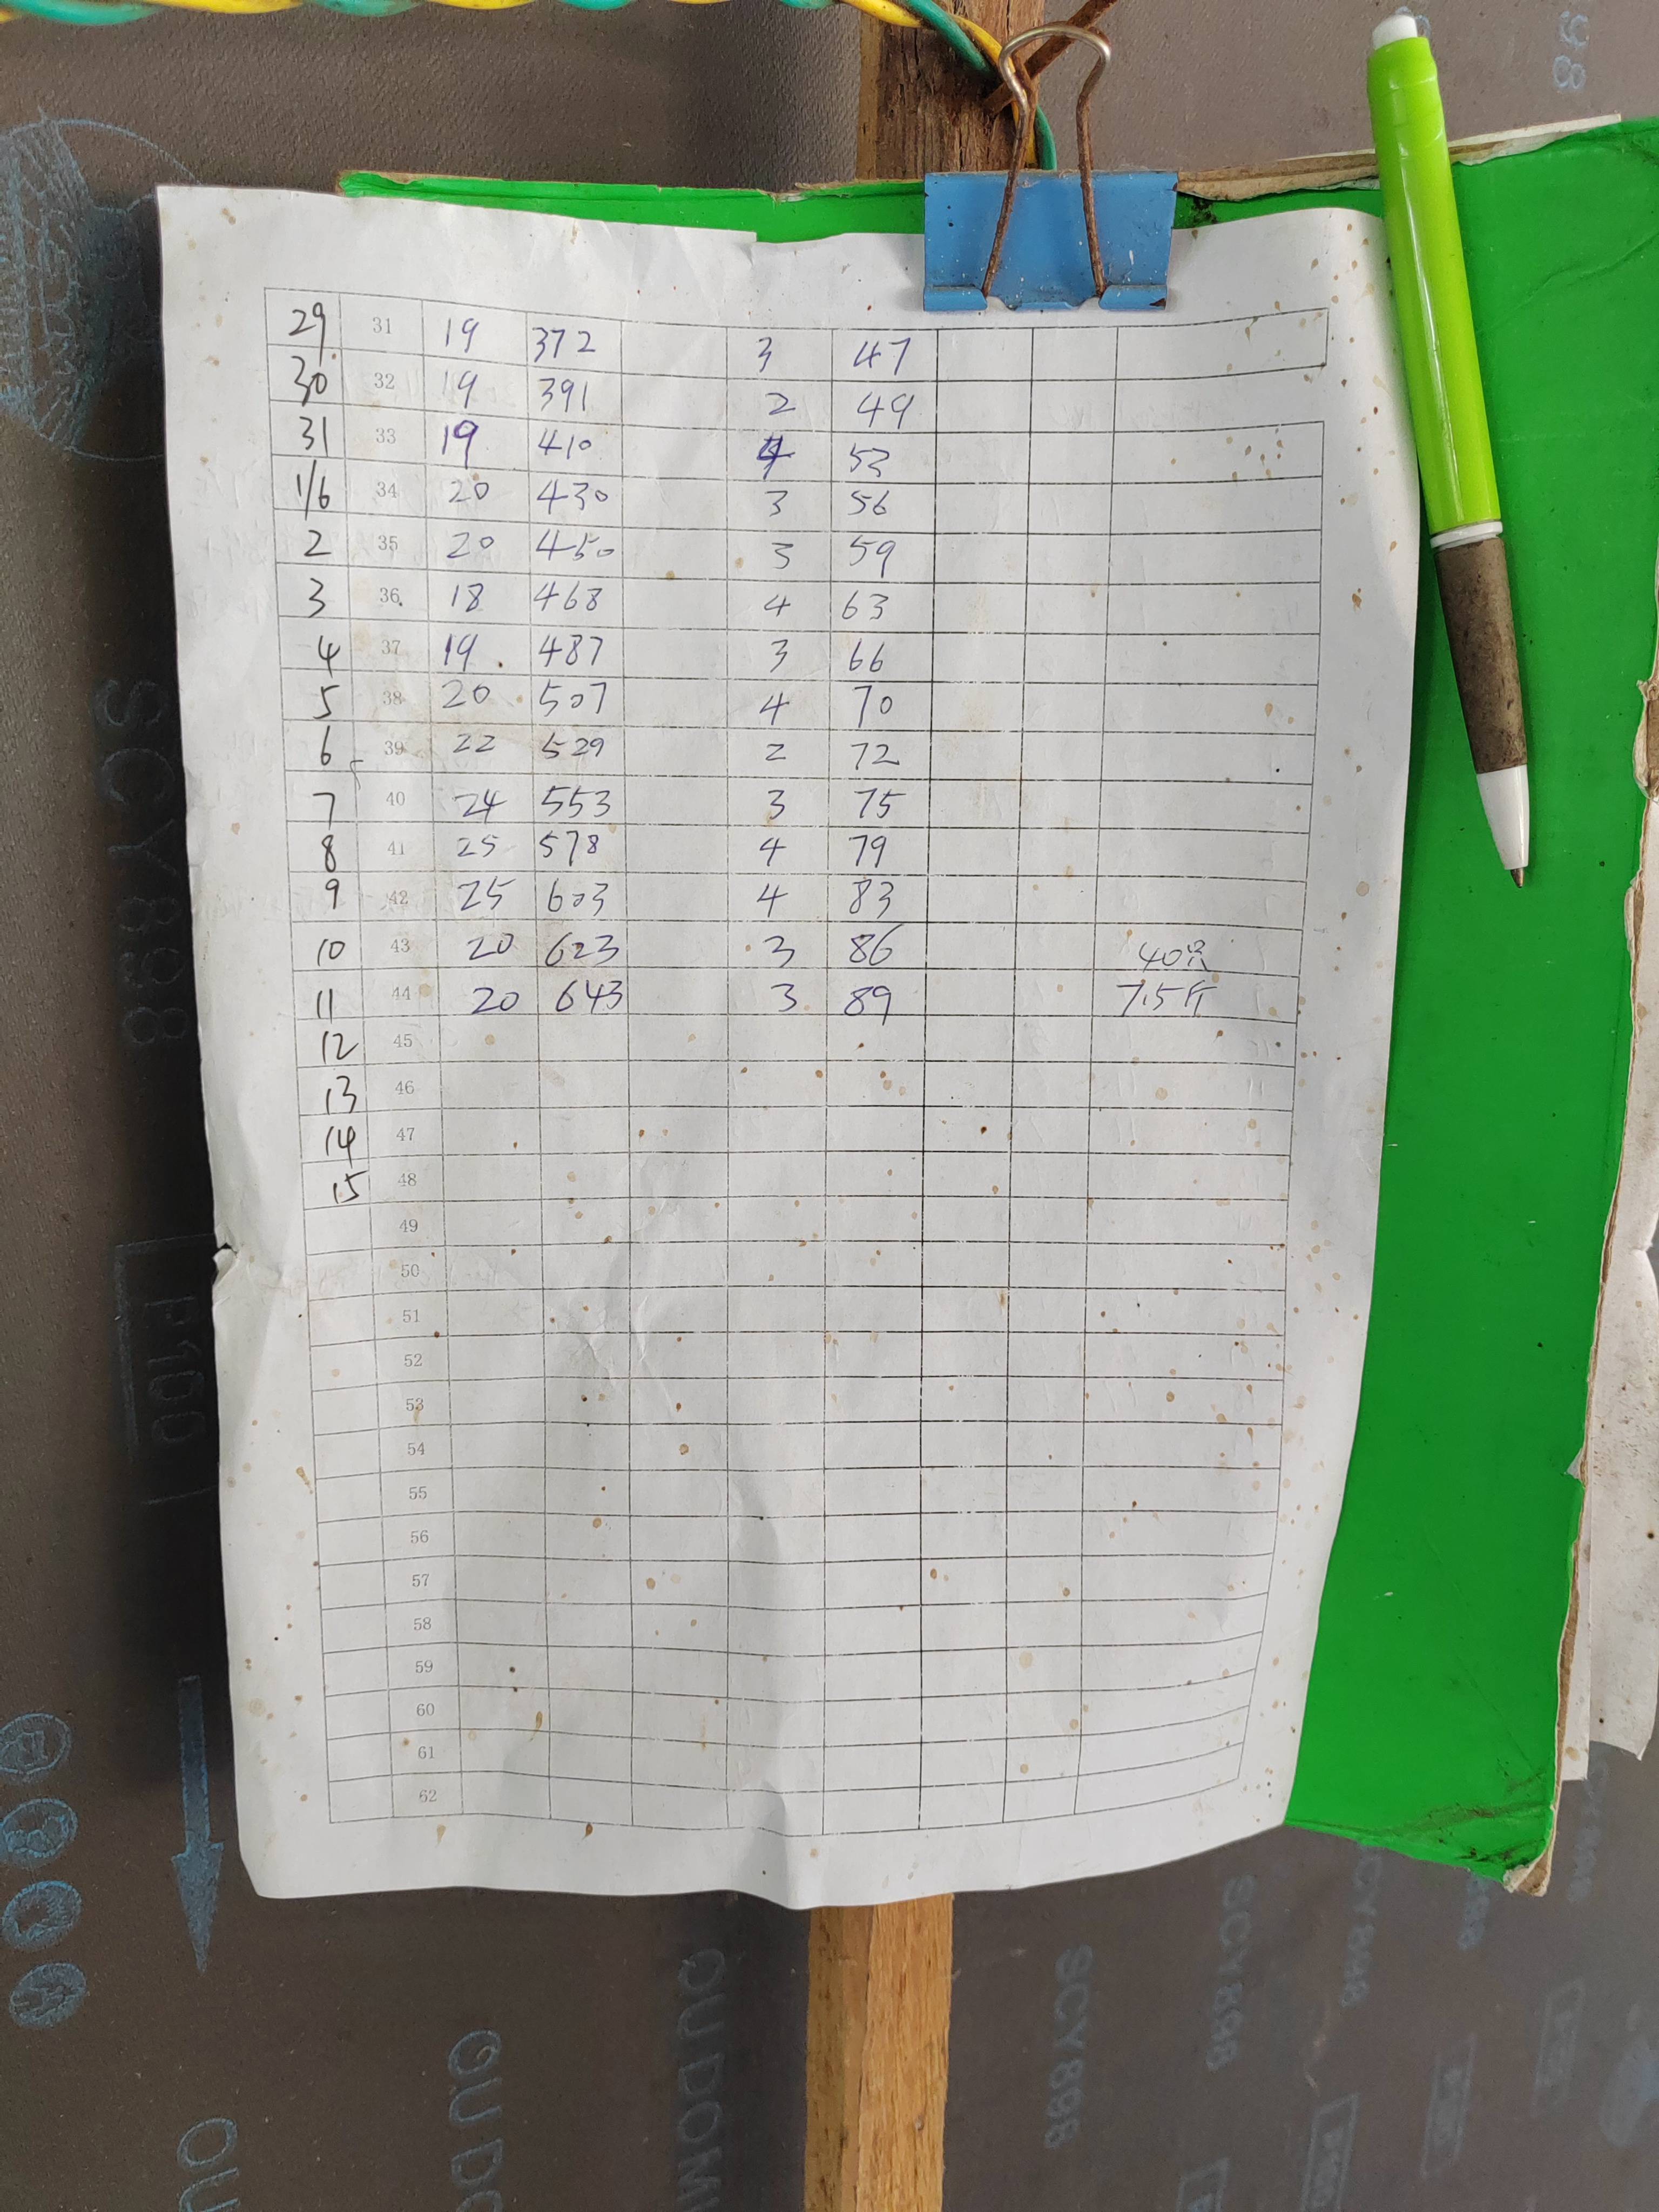 29 31 19 372 3 47
30 32 19 391 2 49
31 33 19 410 4 53
1/6 34 20 430 3 56
2 35 20 450 3 59
3 36 18 468 4 63
4 37 19 487 3 66
5 38 20 507 4 70
6 39 22 529 2 72
7 40 24 553 3 75
8 41 25 578 4 79
9 42 25 603 4 83
10 43 20 623 3 86 40只
11 44 20 643 3 89 7.5斤
12 45
13 46
14 47
15 48
49
50
51
52
53
54
55
56
57
58
59
60
61
62
SCY898
P100
SCY898
SCY898
OUDOM